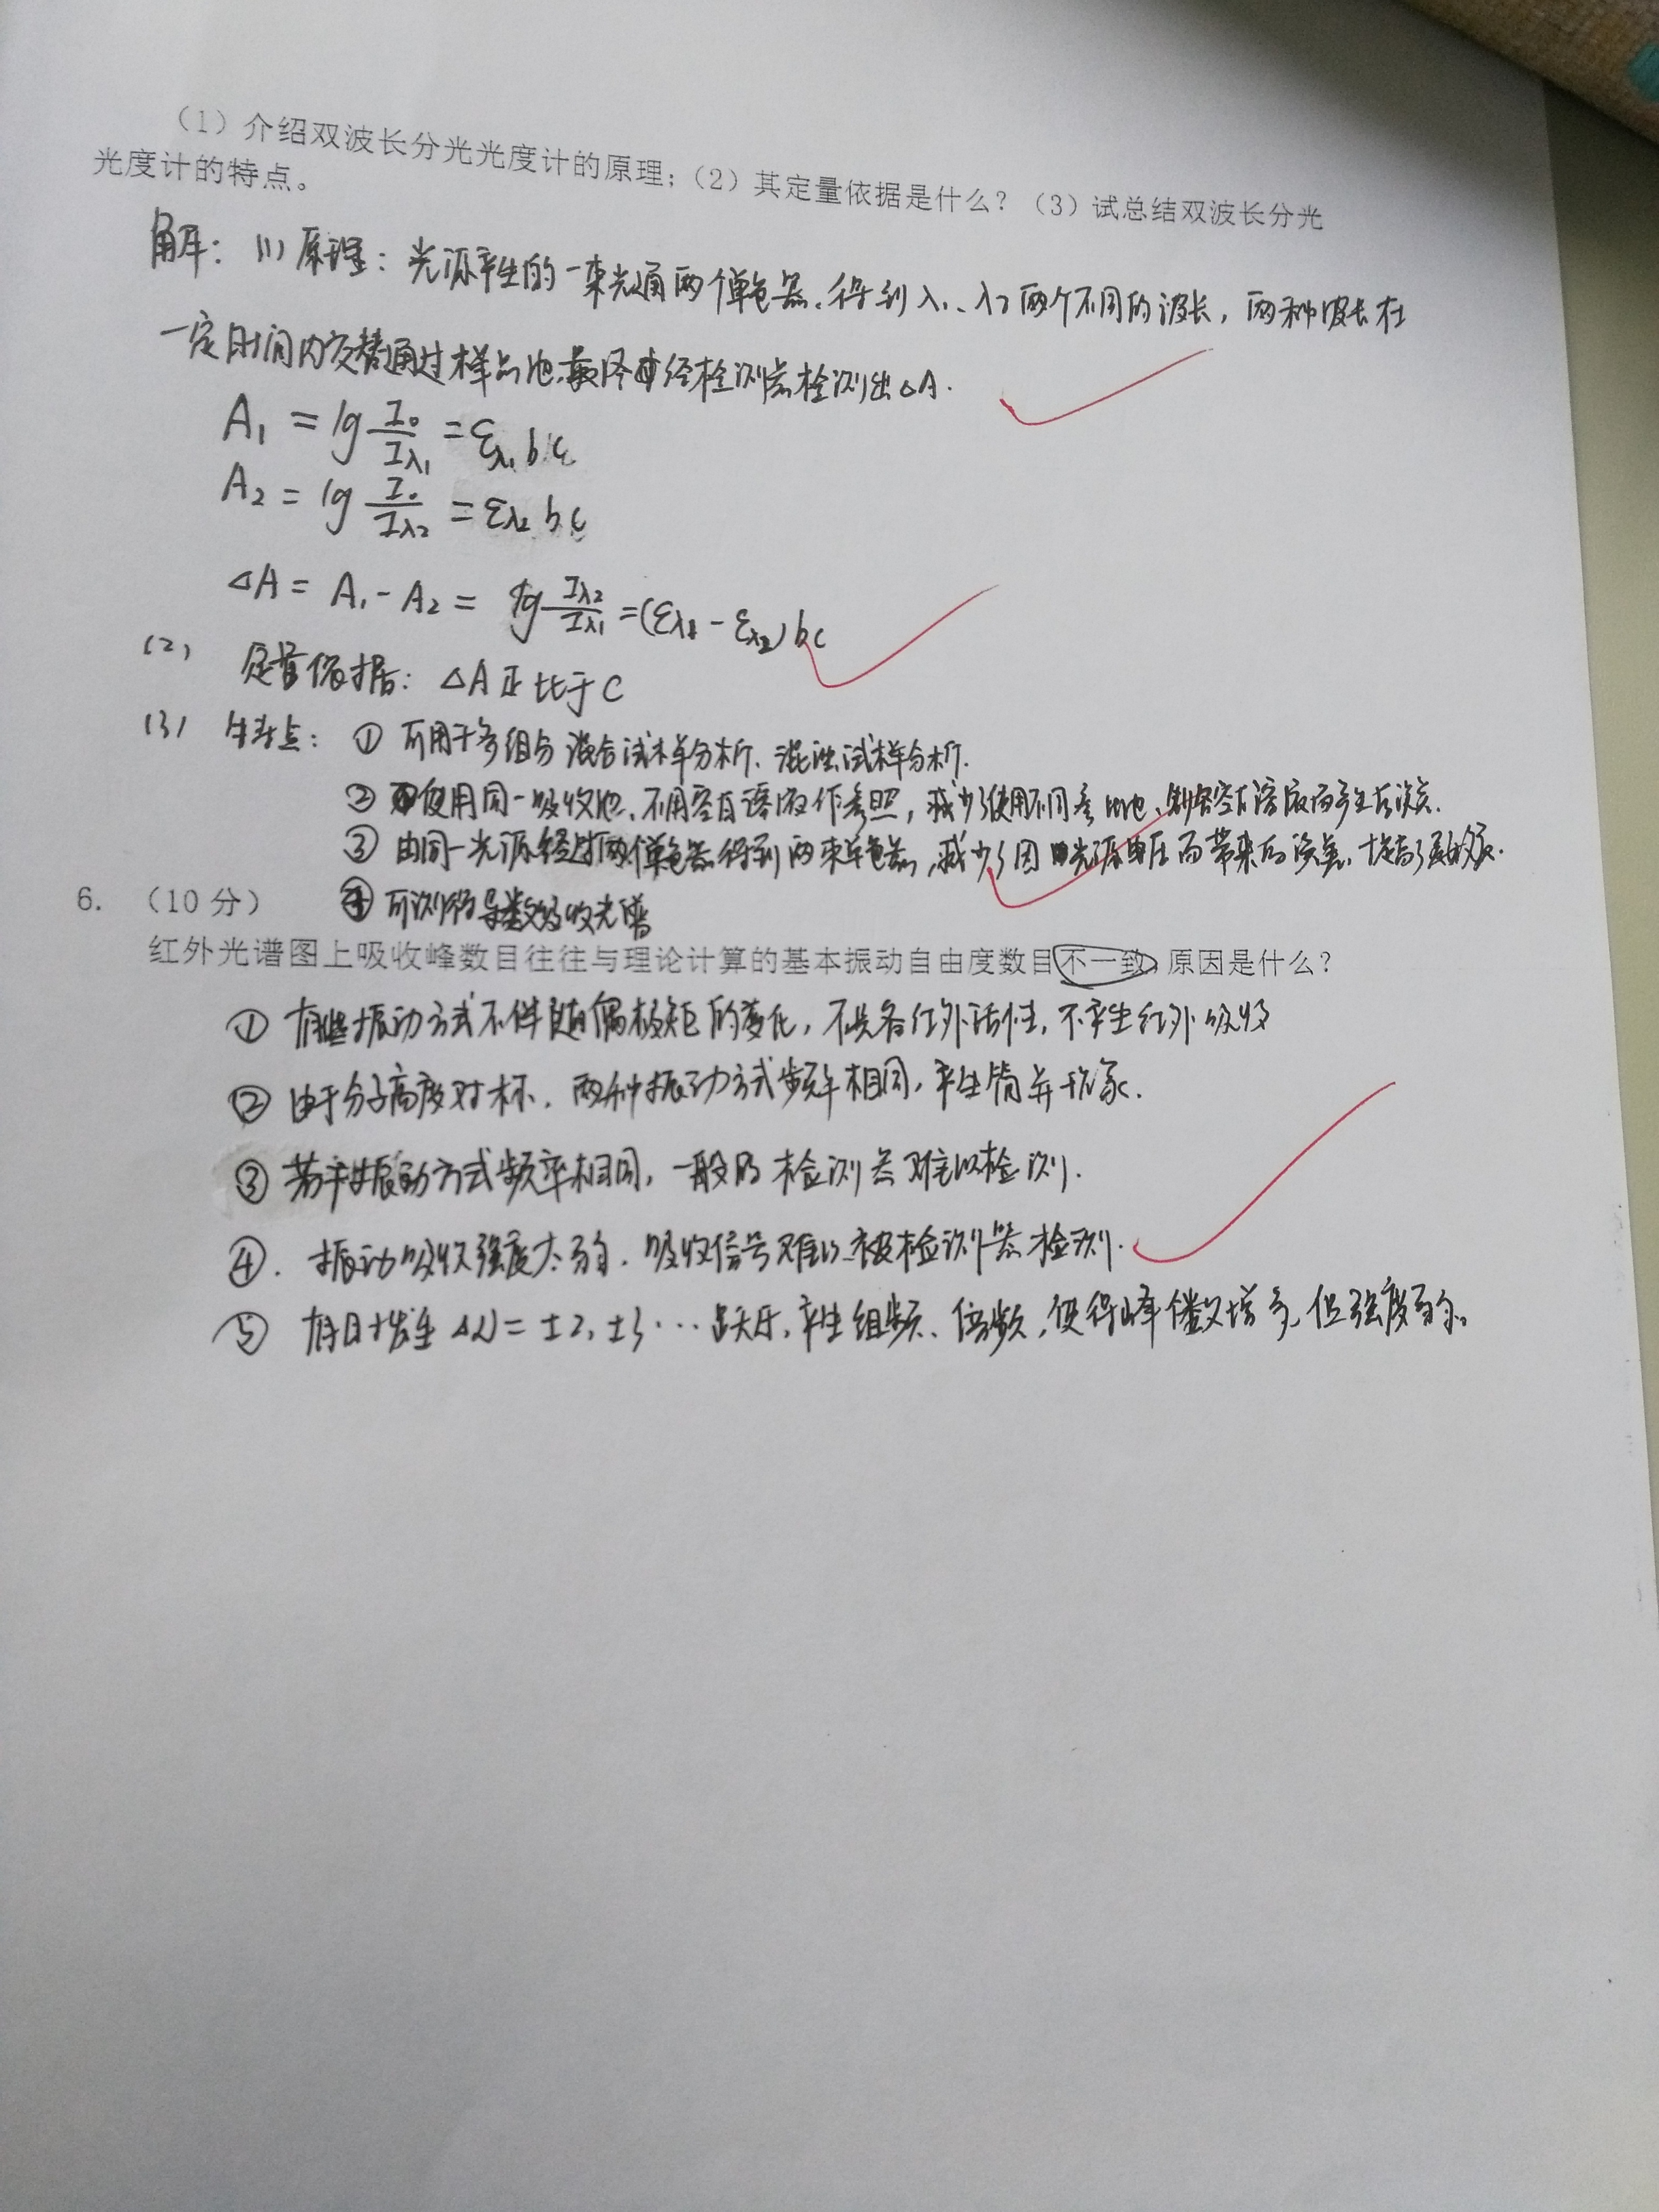 （1）介绍双波长分光光度计的原理；（2）其定量依据是什么？（3）试总结双波长分光
光度计的特点。
解：(1) 原理：光源产生的一束光通两个单色器，得到λ₁、λ₂两个不同的波长，两种波长在
一定时间内交替通过样品池，最终经检测器检测出△A.
A₁ = lg I₀/Iλ₁ = ελ₁ bc
A₂ = lg I₀/Iλ₂ = ελ₂ bc
△A = A₁ - A₂ = lg Iλ₂/Iλ₁ = (ελ₁ - ελ₂) bc
(2) 定量依据：△A正比于C
(3) 特点：① 可用于多组分混合试样分析、混浊试样分析.
② 使用同一吸收池，不用空白溶液作参照，减少了使用不同参比池、制备空白溶液而产生的误差.
③ 由同一光源经过两个单色器得到两束单色器，减少了因光源电压而带来的误差，提高了灵敏度.
④ 可测得导数吸收光谱
6. （10 分）
红外光谱图上吸收峰数目往往与理论计算的基本振动自由度数目不一致，原因是什么？
① 有些振动方式不伴随偶极矩的变化，不具备红外活性，不产生红外吸收
② 由于分子高度对称，两种振动方式频率相同，产生简并现象.
③ 若振动方式频率相同，一般的检测器难以检测.
④. 振动吸收强度太弱，吸收信号难以被检测器检测.
⑤ 有时发生 △ν = ±2, ±3 … 跃迁，产生组频、倍频，使得峰个数增多，但强度弱。